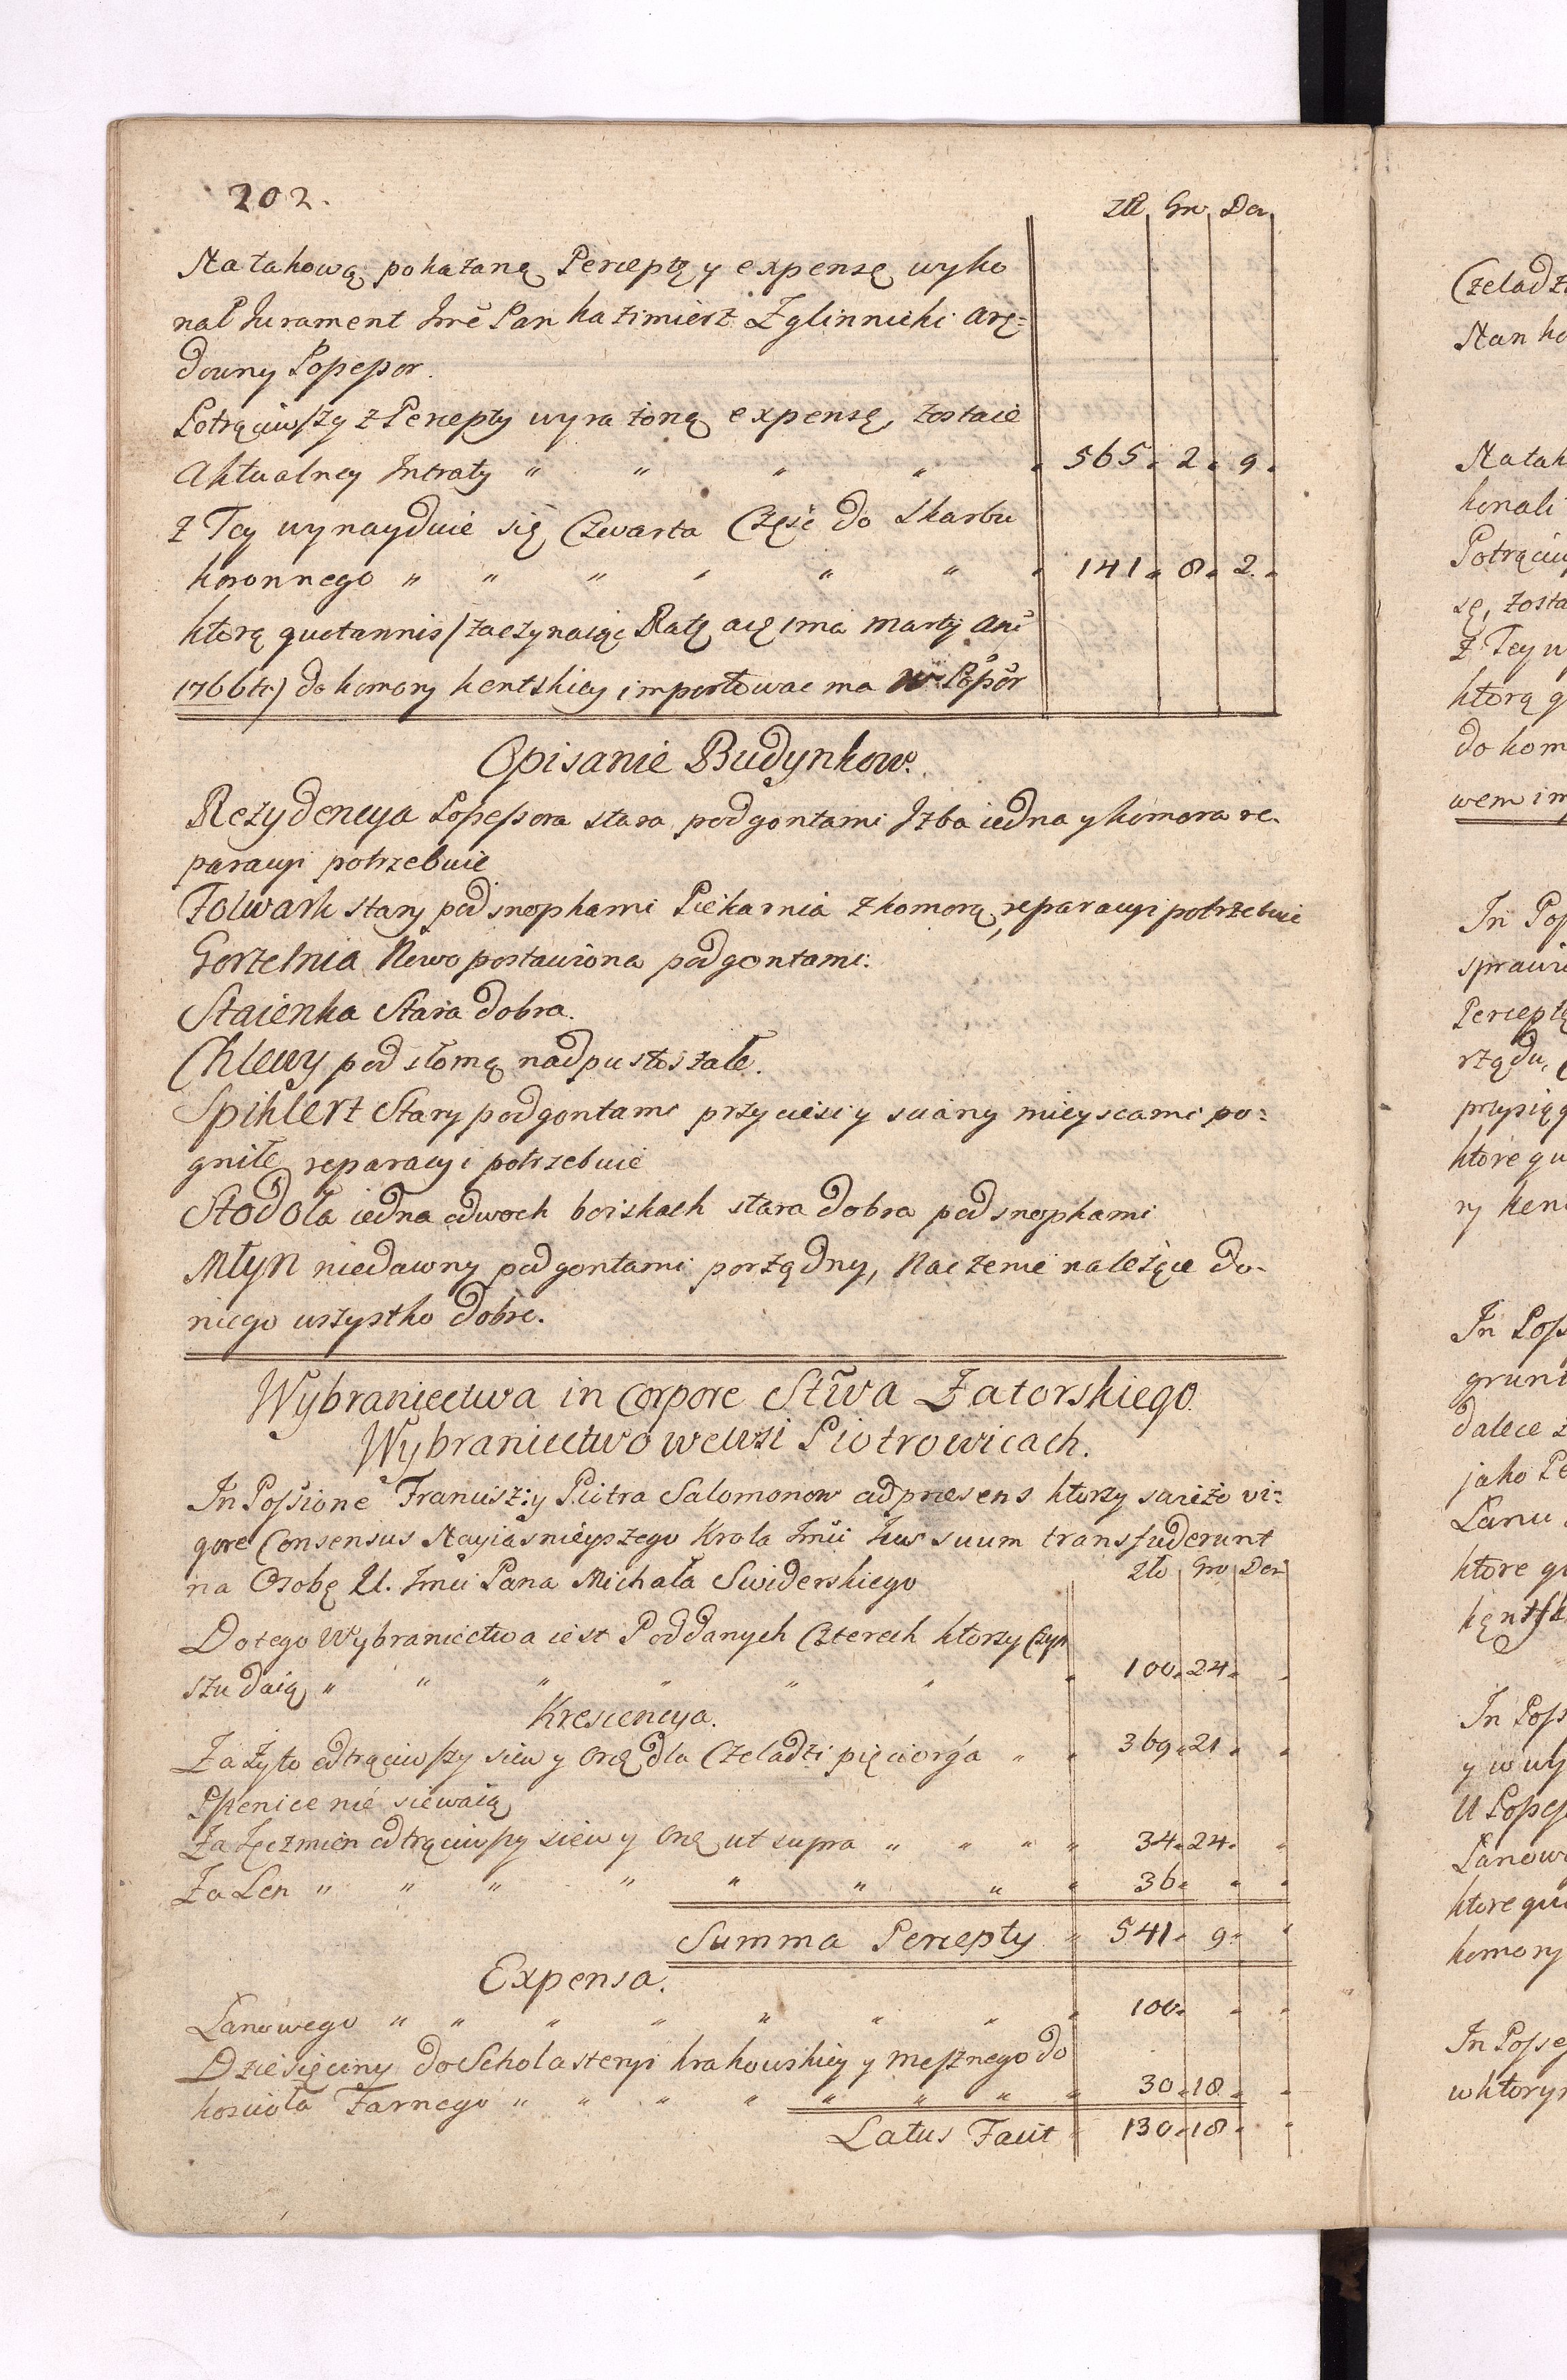 202.
Złł Gro Den
Na takową pokazaną Perceptę y expensę wyko
nał Jurament Jmć Pan Kazimierz Zglinnicki arę-
downy Possessor.
Potrąciwszy z Percepty wyrażoną expensę, zostaie
Aktualney Intraty " " " " 565. 2. 9.
z Tey wynayduie się Czwarta Część do Skarbu
koronnego " " " " " " 141. 8. 2.
którą quotannis (zaczynaiąc Ratę a 1ma Martij Ani
1766tr) do komory kentskiey importować ma W Possor
Opisanie Budynkow.
Rezydencya Possessora stara pod gontami Izba iedna y komora re-
paracyi potrzebuie
Folwark stary pod snopkami Piekarnia z komorą, reparacyi potrzebuie
Gorzelnia Nowo postawiona pod gontami.
Staienka Stara dobra.
Chlewy pod słomą nadpustoszałe.
Spihlerz Stary pod gontami przyciesi y sciany mieyscami po-
gniłe reparacyi potrzebuie
Stodoła iedna o dwoch boiskach stara dobra pod snopkami
Młyn niedawny pod gontami porządny, Naczenie należące do-
niego wszystko dobre.
Wybraniectwa in Corpore Sttwa Zatorskiego
Wybraniectwo we wsi Piotrowicach.
In Possione Franciszk: y Piotra Salomonow ad præsens ktorzy swieżo vi-
gore Consensus Nayiasnieyszego Krola Jmći Jus suum transfuderunt
na Osobę U. Jmći Pana Michała Swiderskiego
Zło Gro Den
Do tego Wybraniectwa iest Poddanych Czterech ktorzy Czyn
szu daią " " " " " " 100. 24.
Krescencya.
Za Żyto odtrąciwszy siew y Orę dla Czeladzi pięciorga " " 369. 21.
Pszenice nie siewaią
Za Jęczmień odtrąciwszy siew y Orę ut supra " " " " 34. 24.
Za Len " " " " " " " " 36.
Summa Percepty " 541. 9.
Expensa.
Łanowego " " " " " " " " 100.
Dziesięciny do Scholasteryi krakowskiey y Mesznego do
kościoła Farnego " " " " " " " 30. 18.
Latus Facit " 130. 18.